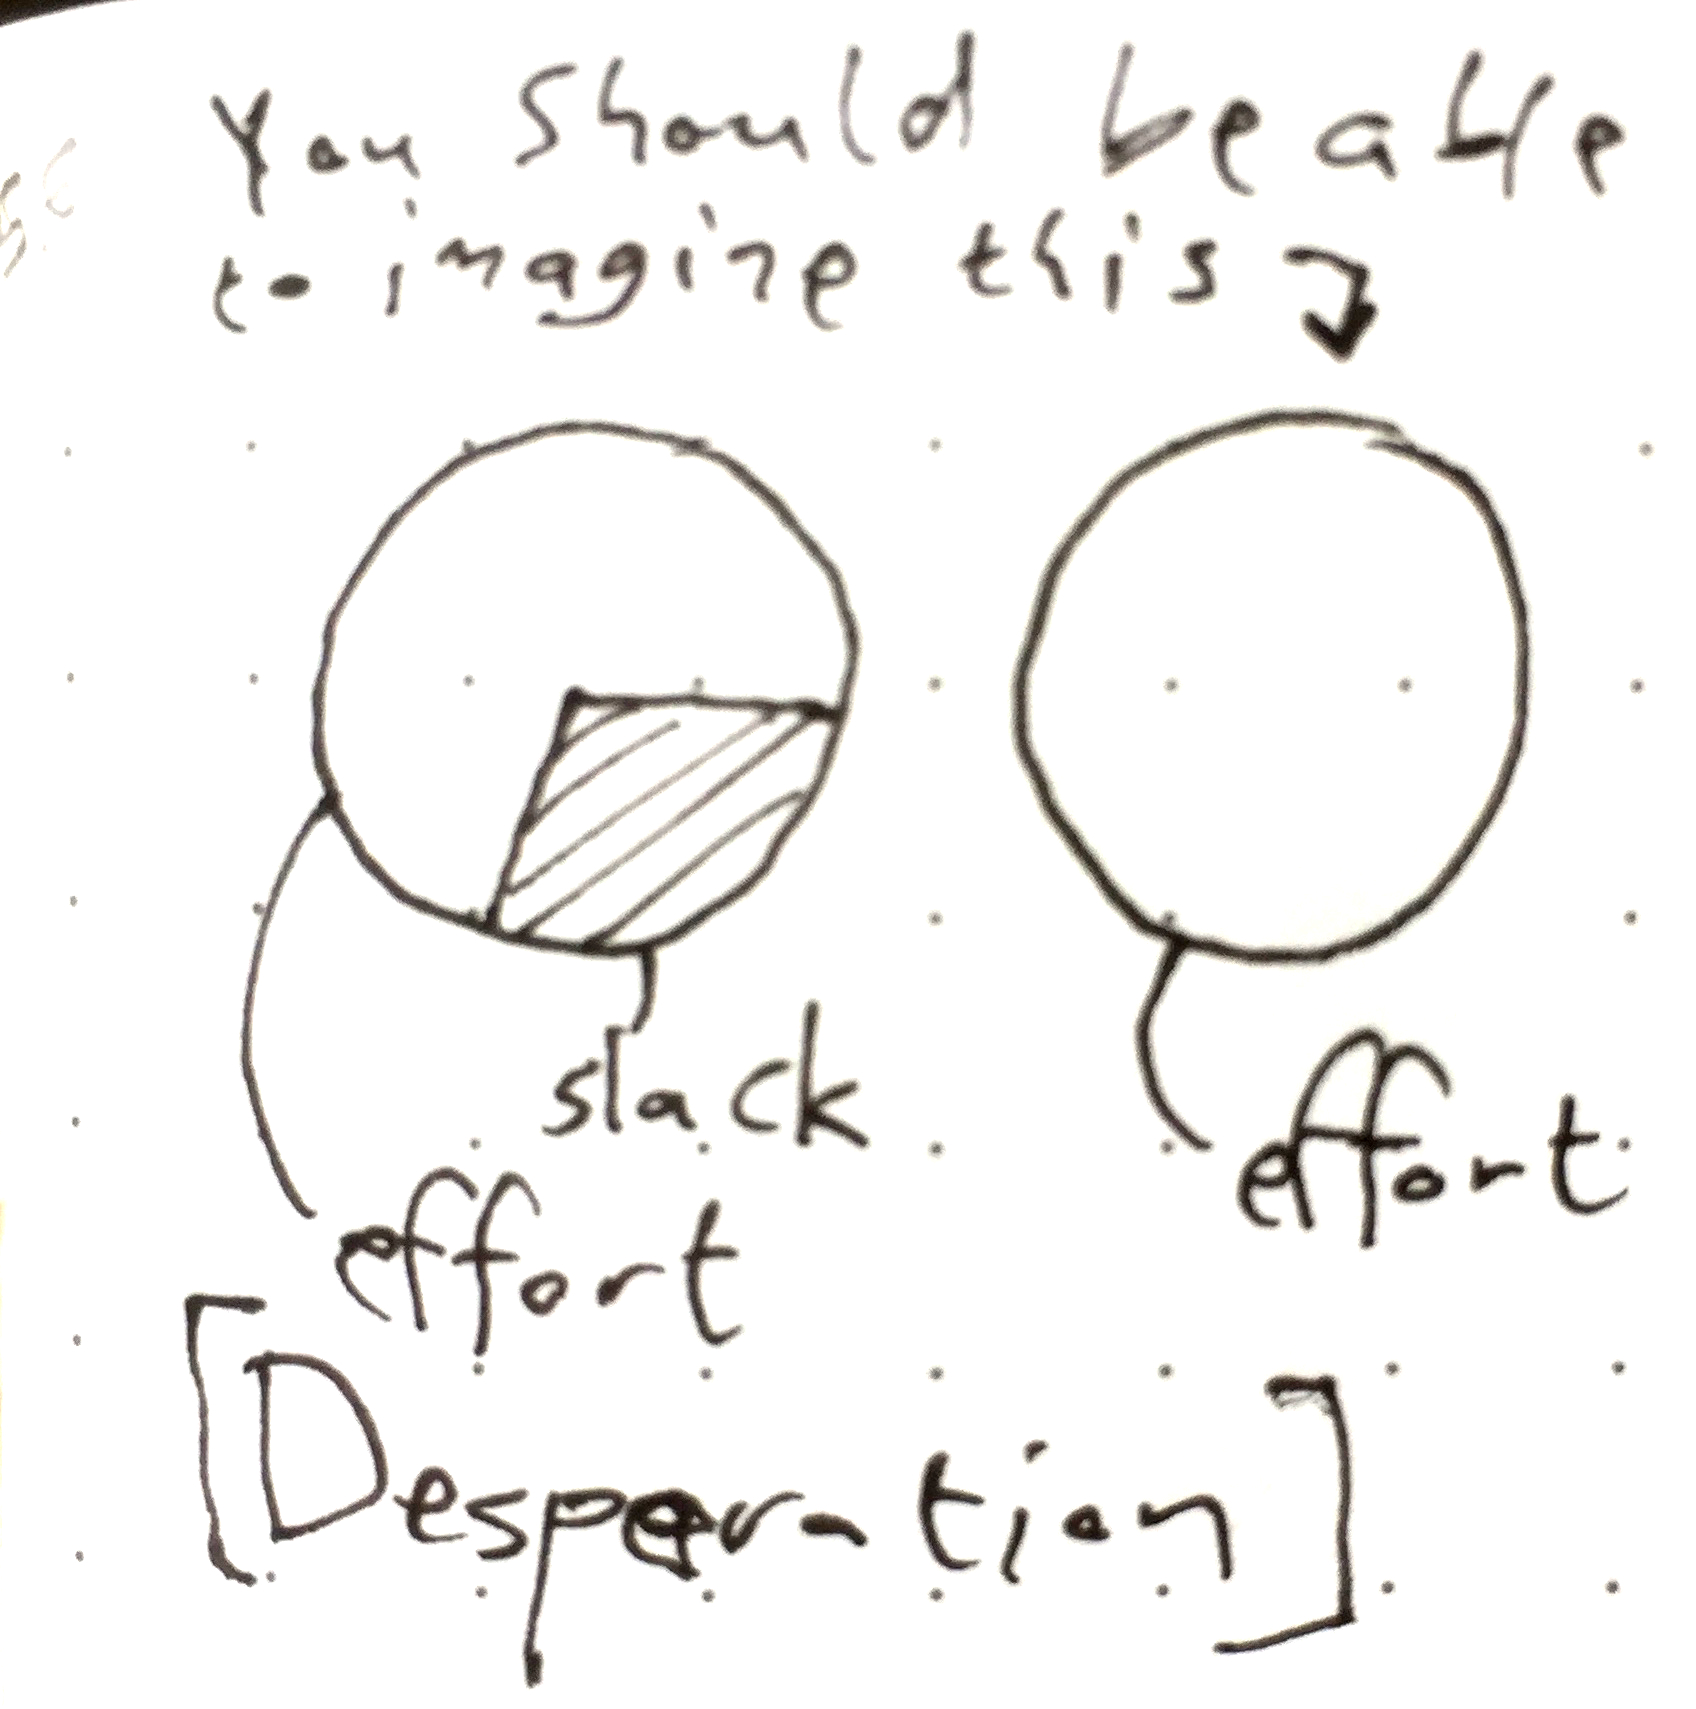 You should be able
to imagine this
slack
effort
effort
[Desperation]